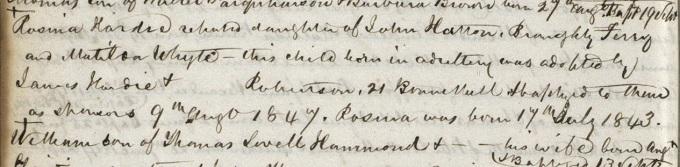 Barbara Brown born 27th Augt Bapt 19 Septr
Rosina Hardie reputed daughter of John Hatton, Broughty Ferry
and Matilda Whyte – this child born in adultery was adopted by
James Hardie & Robinson, 21 Bonnethill & baptized to them
as sponsors 9th Augt 1847. Rosina was born 17th July 1843.
William son of Thomas Lovell Hammond & – – his wife born Augt
Baptized 13 Septr